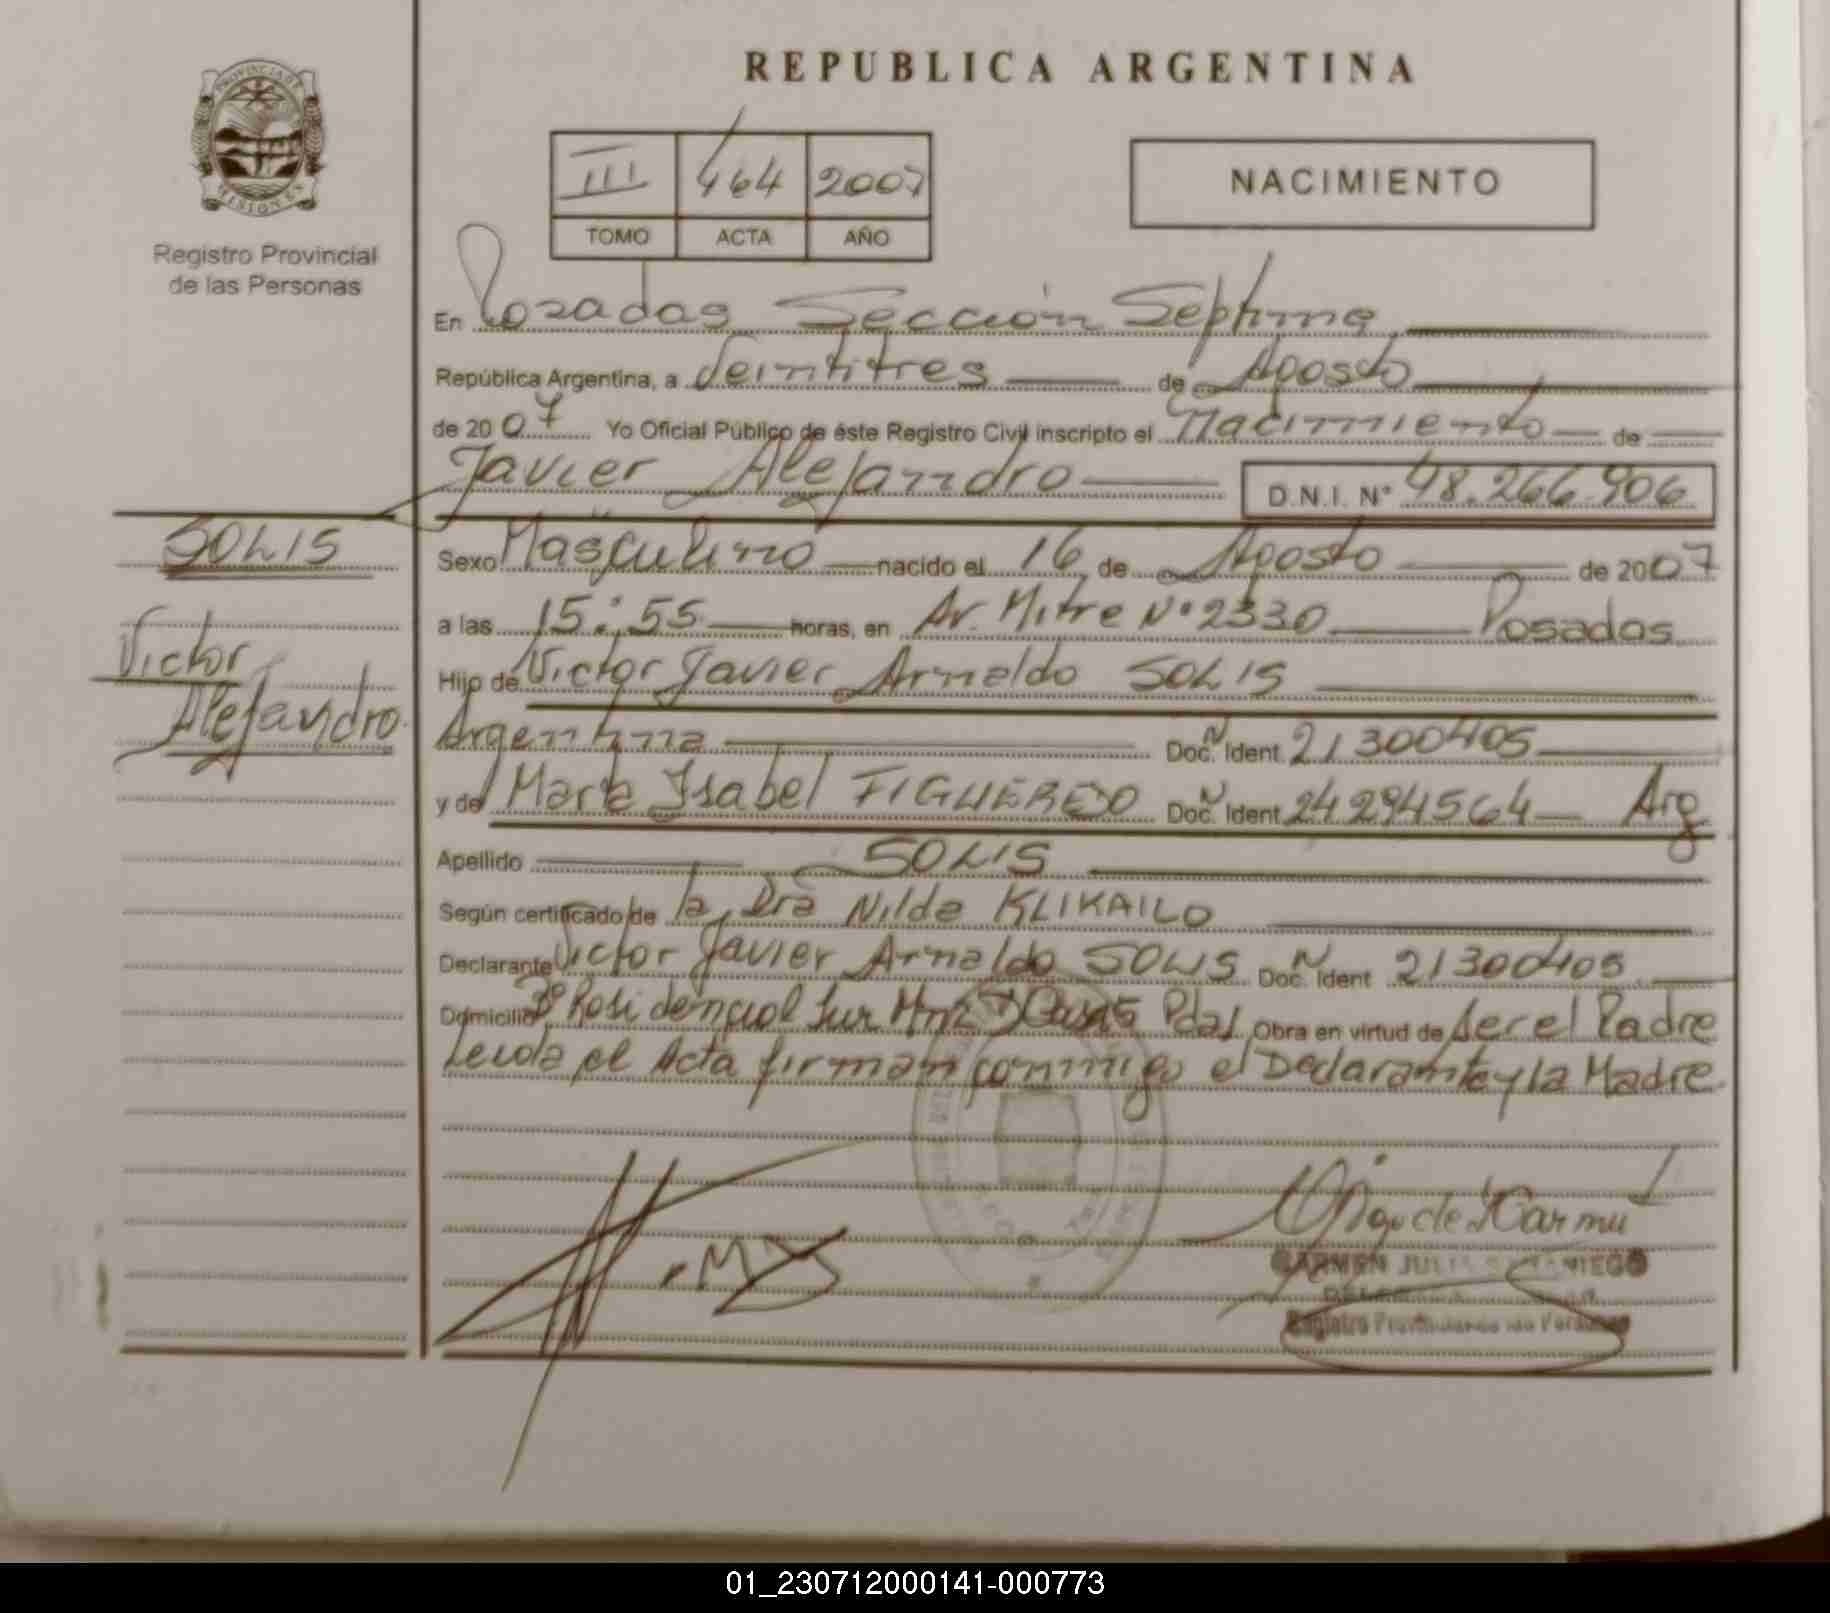 REPUBLICA ARGENTINA
PROVINCIA DE
MISIONES
Registro Provincial
de las Personas
III 464 2007
TOMO ACTA AÑO
NACIMIENTO
En Posadas Sección Septima
República Argentina, a Veintitres de Agosto
de 2007 Yo Oficial Público de éste Registro Civil inscripto el Nacimiento de
Javier Alejandro D.N.I. N° 48.266.906
SOLIS
Victor
Alejandro.
Sexo Masculino nacido el 16 de Agosto de 2007
a las 15:55 horas, en Av. Mitre N° 2330 Posadas
Hijo de Victor Javier Arnaldo SOLIS
Argentina Doc. Ident. 21300405
y de María Isabel FIGUEREDO Doc. Ident. 24294564 Arg
Apellido SOLIS
Según certificado de la Dra Nilda KLIKAILO
Declarante Victor Javier Arnaldo SOLIS Doc. Ident. 21300405
Domicilio Bº Residencial Sur Casa 5 Pdas Obra en virtud de ser el Padre
Leida el Acta firman conmigo el Declarante y la Madre
CARMEN JULIA
01_230712000141-000773